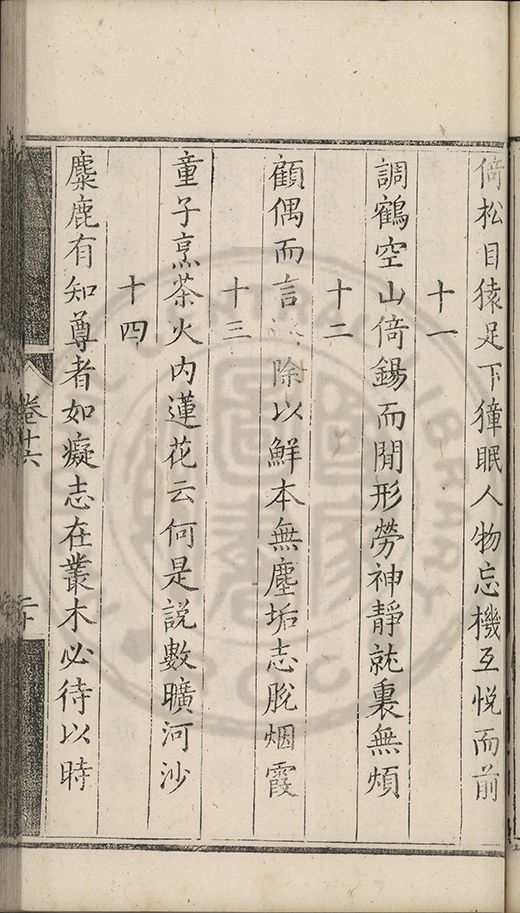 倚松目猿足下獐眠人物忘機互悅而前
十一
調鶴空山倚錫而閒形勞神靜就裏無煩
十二
顧偶而言 除以鮮本無塵垢志脫烟霞
十三
童子烹茶火内蓮花云何是説數曠河沙
十四
麋鹿有知尊者如癡志在叢木必待以時
卷十六
二十